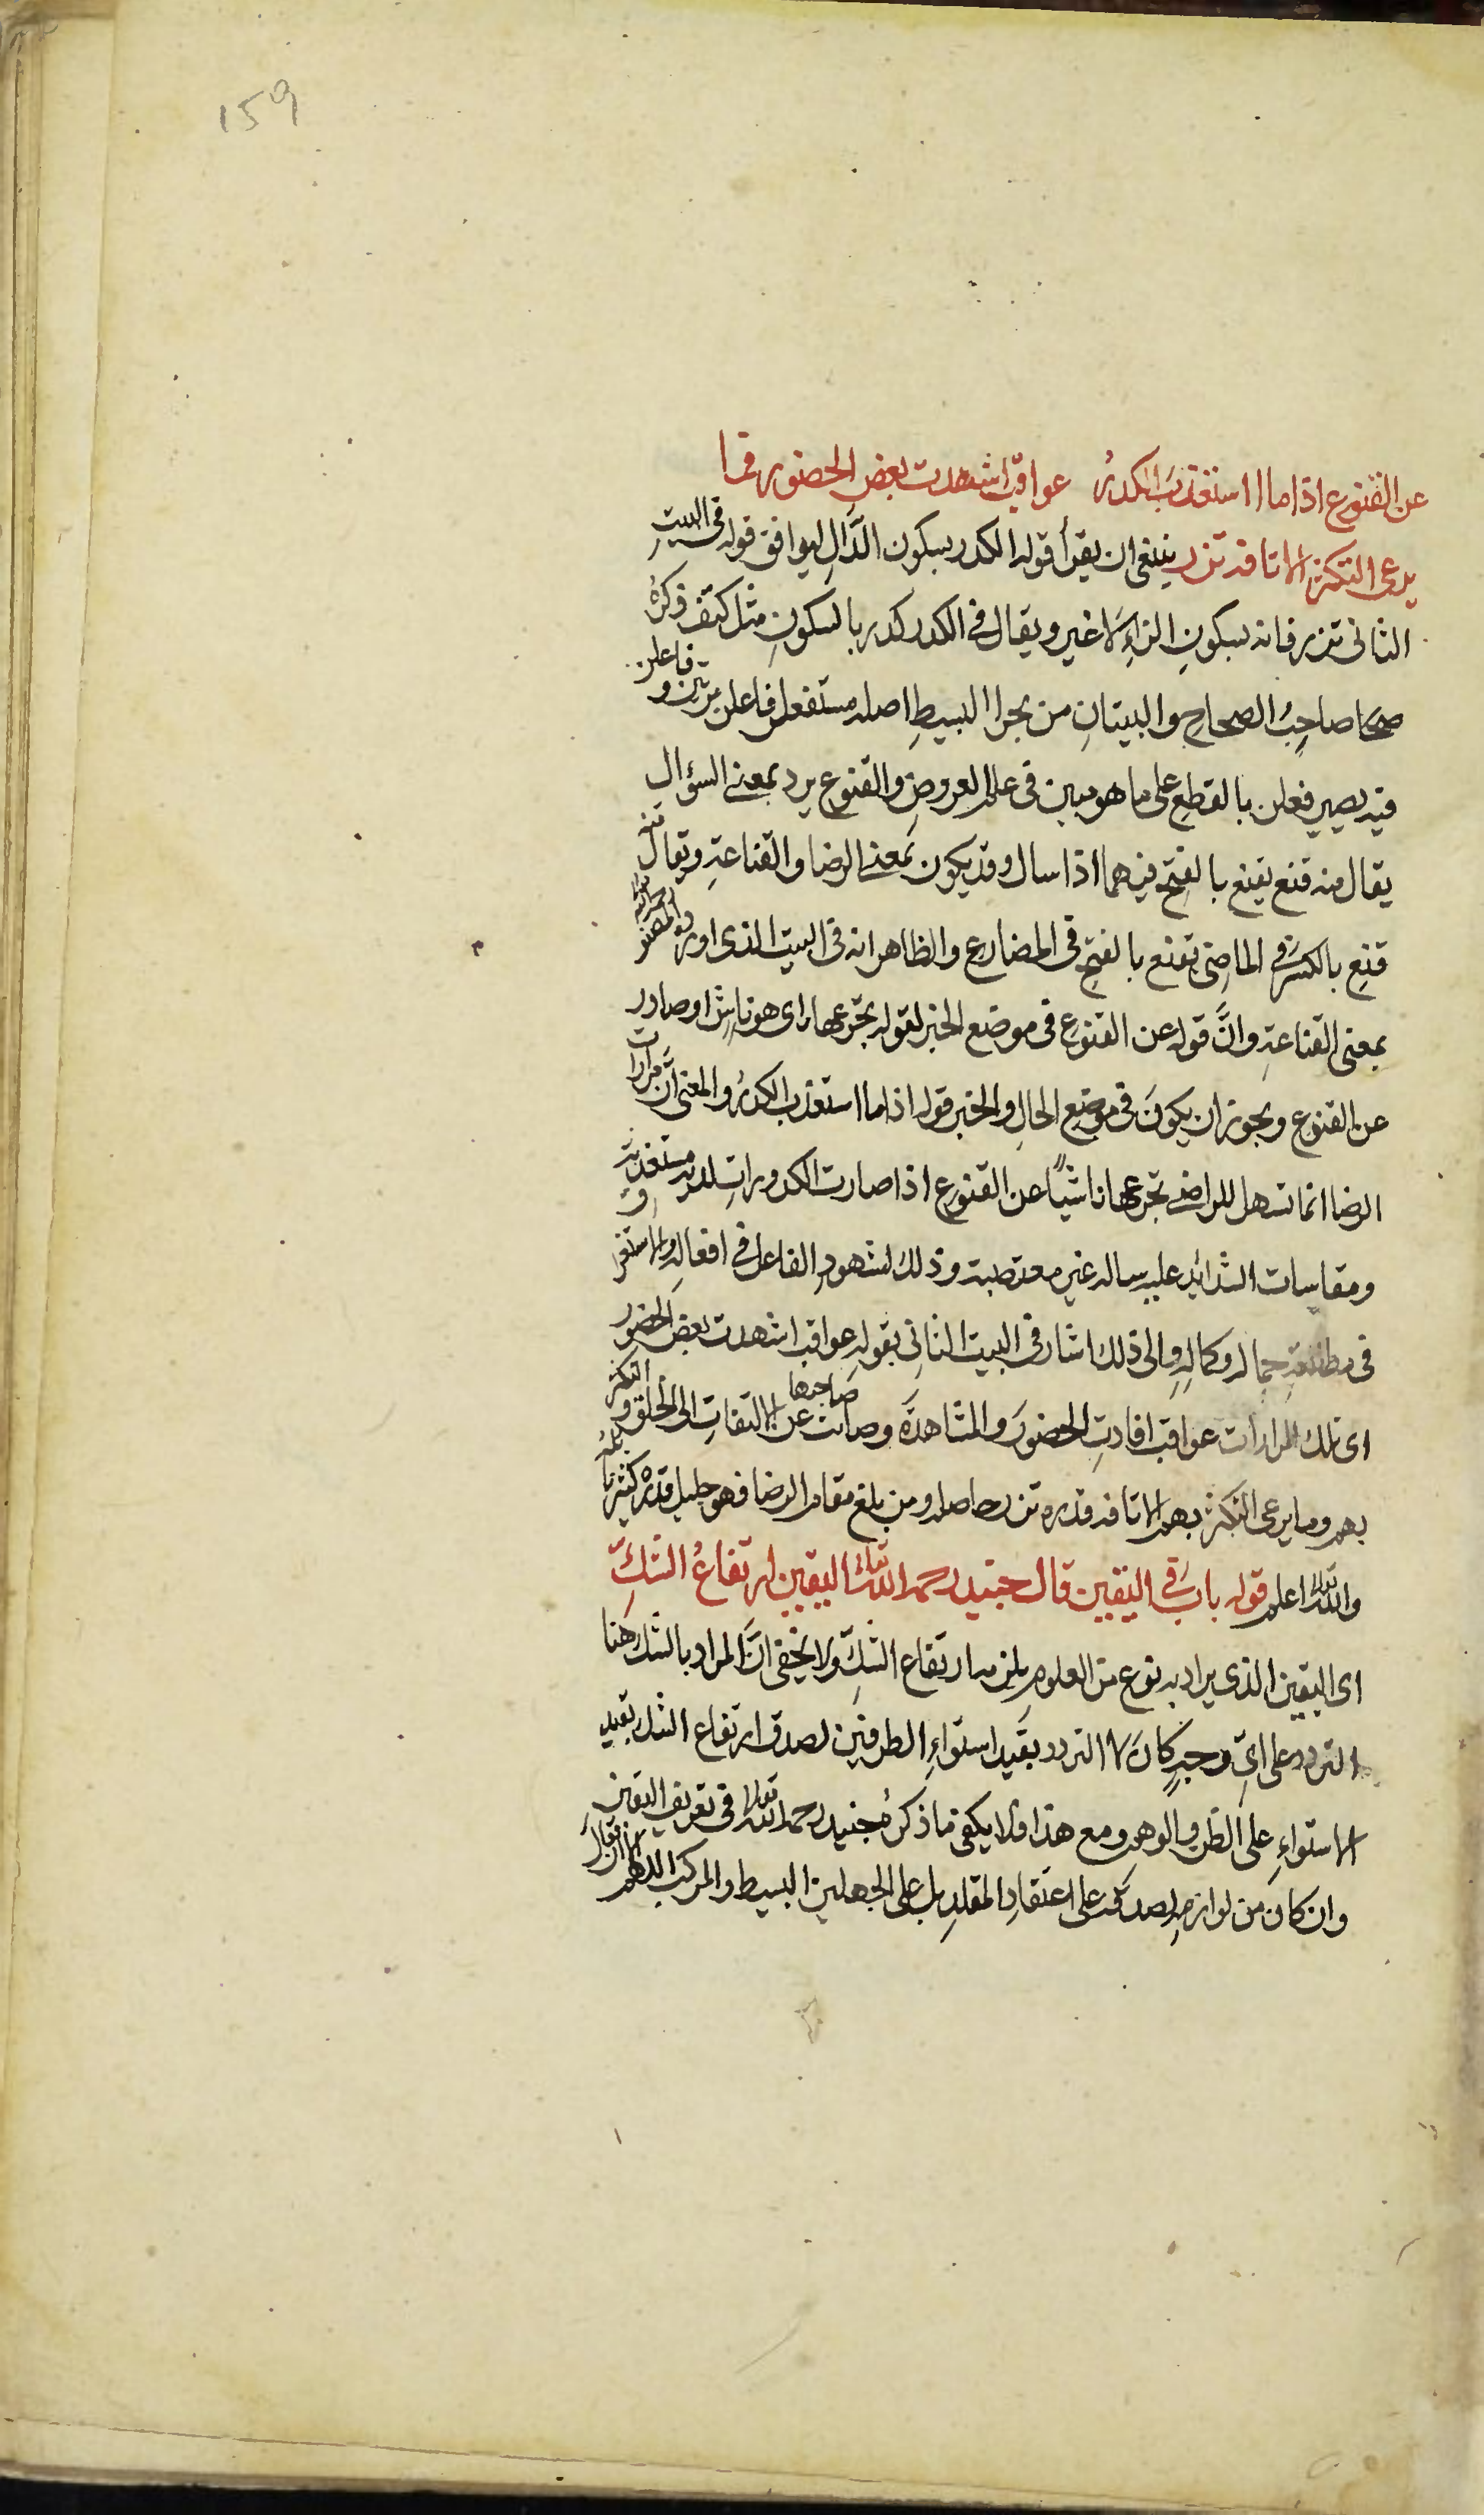 159
عن القنوع اذا ما استعذب الكدرُ عواقب اشهدت بعض الحضور فما
يرعى التكثر الا تافه نزر ينبغي ان يقرأ قوله الكدر بسكون الدّالِ ليوافق قوله في البيتِ
الثانى نزر فانه بسكونِ الزاءِ لا غير ويقال في الكدر كدر بالسكونِ مثل كتف ذكرهُ
صاحِبُ الصحاحِ والبيتانِ من بحر البسيطِ اصله مستفعلن فاعلن مرتين وفاعلن
فيه يصير فعلن بالقطعِ على ما هو مبين في علم العروضِ والقنوع يرد بمعنى السؤال
يقال منه قنع يقنع بالفتحِ فيهما اذا سال وقد يكون بمعنى الرضا والقناعةِ ويقال منه
قنِع بالكسر في الماضِى يقنع بالفتحِ في المضارعِ والظاهر انه في البيت الذى اورده المصنف
بمعنى القناعةِ وانَّ قوله عن القنوعِ في موضع الخبر لقوله تجرعها اى هو ناشٍ او صادر
عن القنوع ويجوز ان يكونَ في موضِع الحالِ والخبر قوله اذا ما استعذب الكدرُ والمعنى انّ مرارات
الرضا انما تسهل للراضى تجرعها ناشئاً عن القنوعِ اذا صارت الكدوراتِ لديه مستعذبة
ومقاسات الشدائد عليه سهلة غير معتصبة وذلك لشهودِ الفاعل في افعالهِ والاستغراق
في مطالعةِ جماله وكمالهِ والى ذلك اشار في البيت الثانِى بقولهِ عواقب اشهدت بعض الحضور
اى تلك المرارات عواقب افادتِ الحضورَ والمشاهدَة وصانت صاحبها عن الالتفاتِ الى الخلقِ والتكثر
بهم وما يرعى التكثر بهم الا تافه قدره نزر حاصله ومن بلغ مقام الرضا فهو جليل قدره كثير نائله
والله تعالى اعلم قوله بابٌ في اليقين قال جنيد رحمه الله تعالى اليقين ارتفاعُ الشكِّ
اى اليقين الذى يراد به نوع من العلومِ يلزمه ارتفاع الشكِّ ولا يخفى انَّ المراد بالشك هنا
التردد على اىِّ وجهٍ كانَ لا التردد بقيد استواءِ الطرفين لصدق ارتفاع الشك بقيد
الاستواءِ على الظن والوهمِ ومع هذا فلا يكفى ما ذكرهُ جنيد رحمه الله تعالى في تعريف اليقين
وان كان من لوازمهِ لصدقه على اعتقادِ المقلدِ بل على الجهلين البسيط والمركب اللهم الا ان يقال